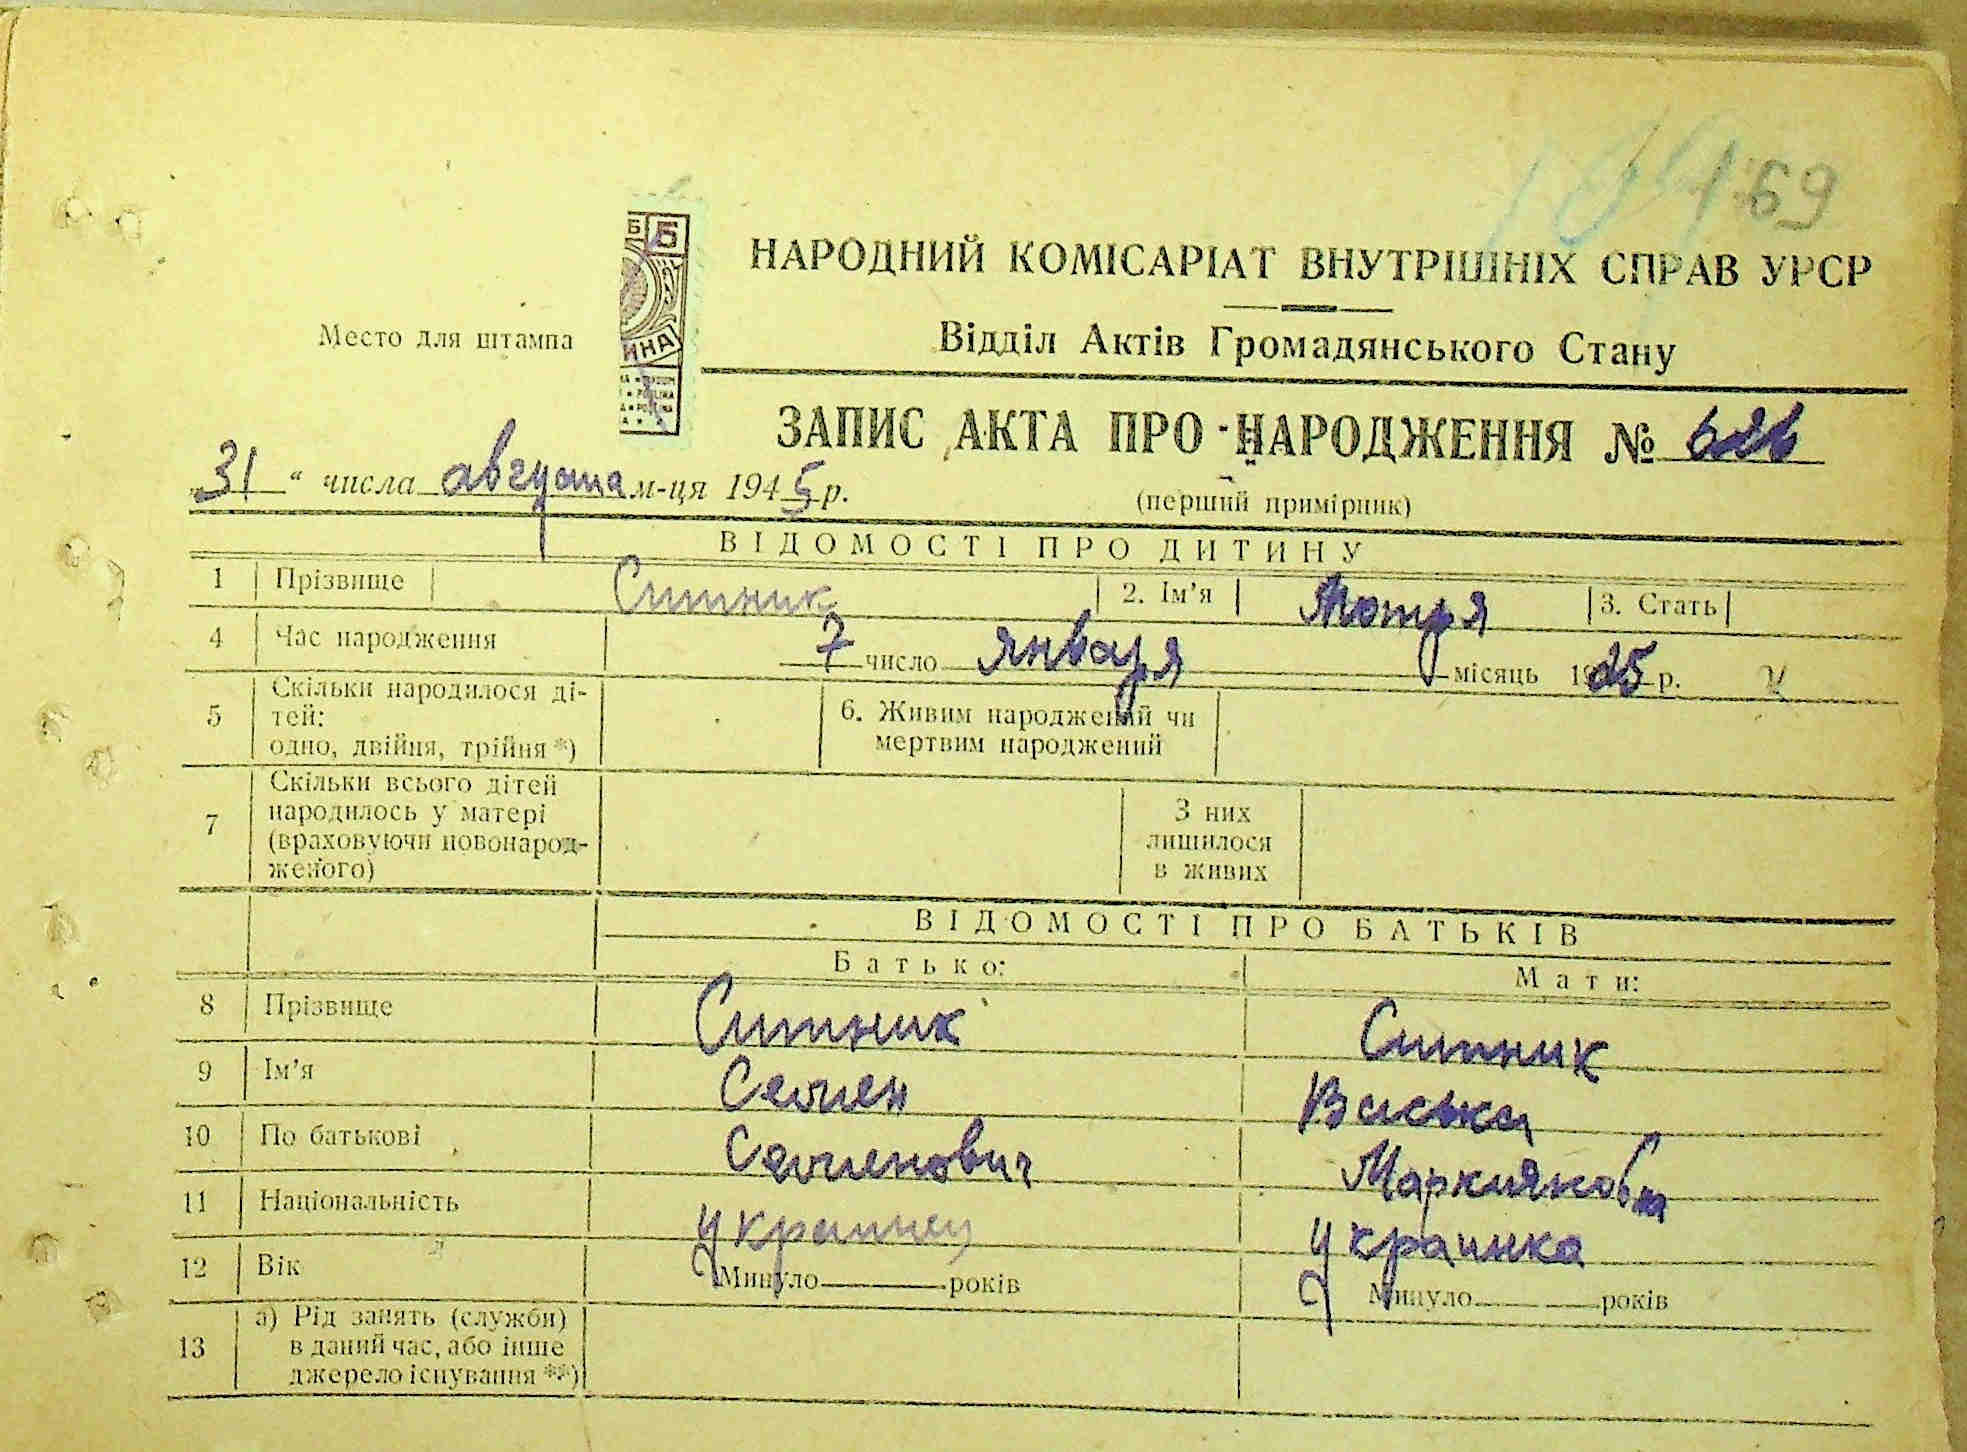 69
НАРОДНИЙ КОМІСАРІАТ ВНУТРІШНІХ СПРАВ УРСР
Место для штампа
Відділ Актів Громадянського Стану
ЗАПИС АКТА ПРО НАРОДЖЕННЯ № 626
31 " числа августа м-ця 1945 р.
(перший примірник)
ВІДОМОСТІ ПРО ДИТИНУ
1 Прізвище Ситник 2. Ім'я Мотря 3. Стать
4 Час народження 7 число января місяць 1925 р.
5 Скільки народилося ді-
тей:
одно, двійня, трійня *)
6. Живим народжений чи
мертвим народжений
7 Скільки всього дітей
народилось у матері
(враховуючи новонарод-
женого)
З них
лишилося
в живих
ВІДОМОСТІ ПРО БАТЬКІВ
Батько: Мати:
8 Прізвище Ситник Ситник
9 Ім'я Семен Васька
10 По батькові Семенович Маркияновна
11 Національність украинец украинка
12 Вік Минуло років Минуло років
13 а) Рід занять (служби)
в даний час, або інше
джерело існування **)